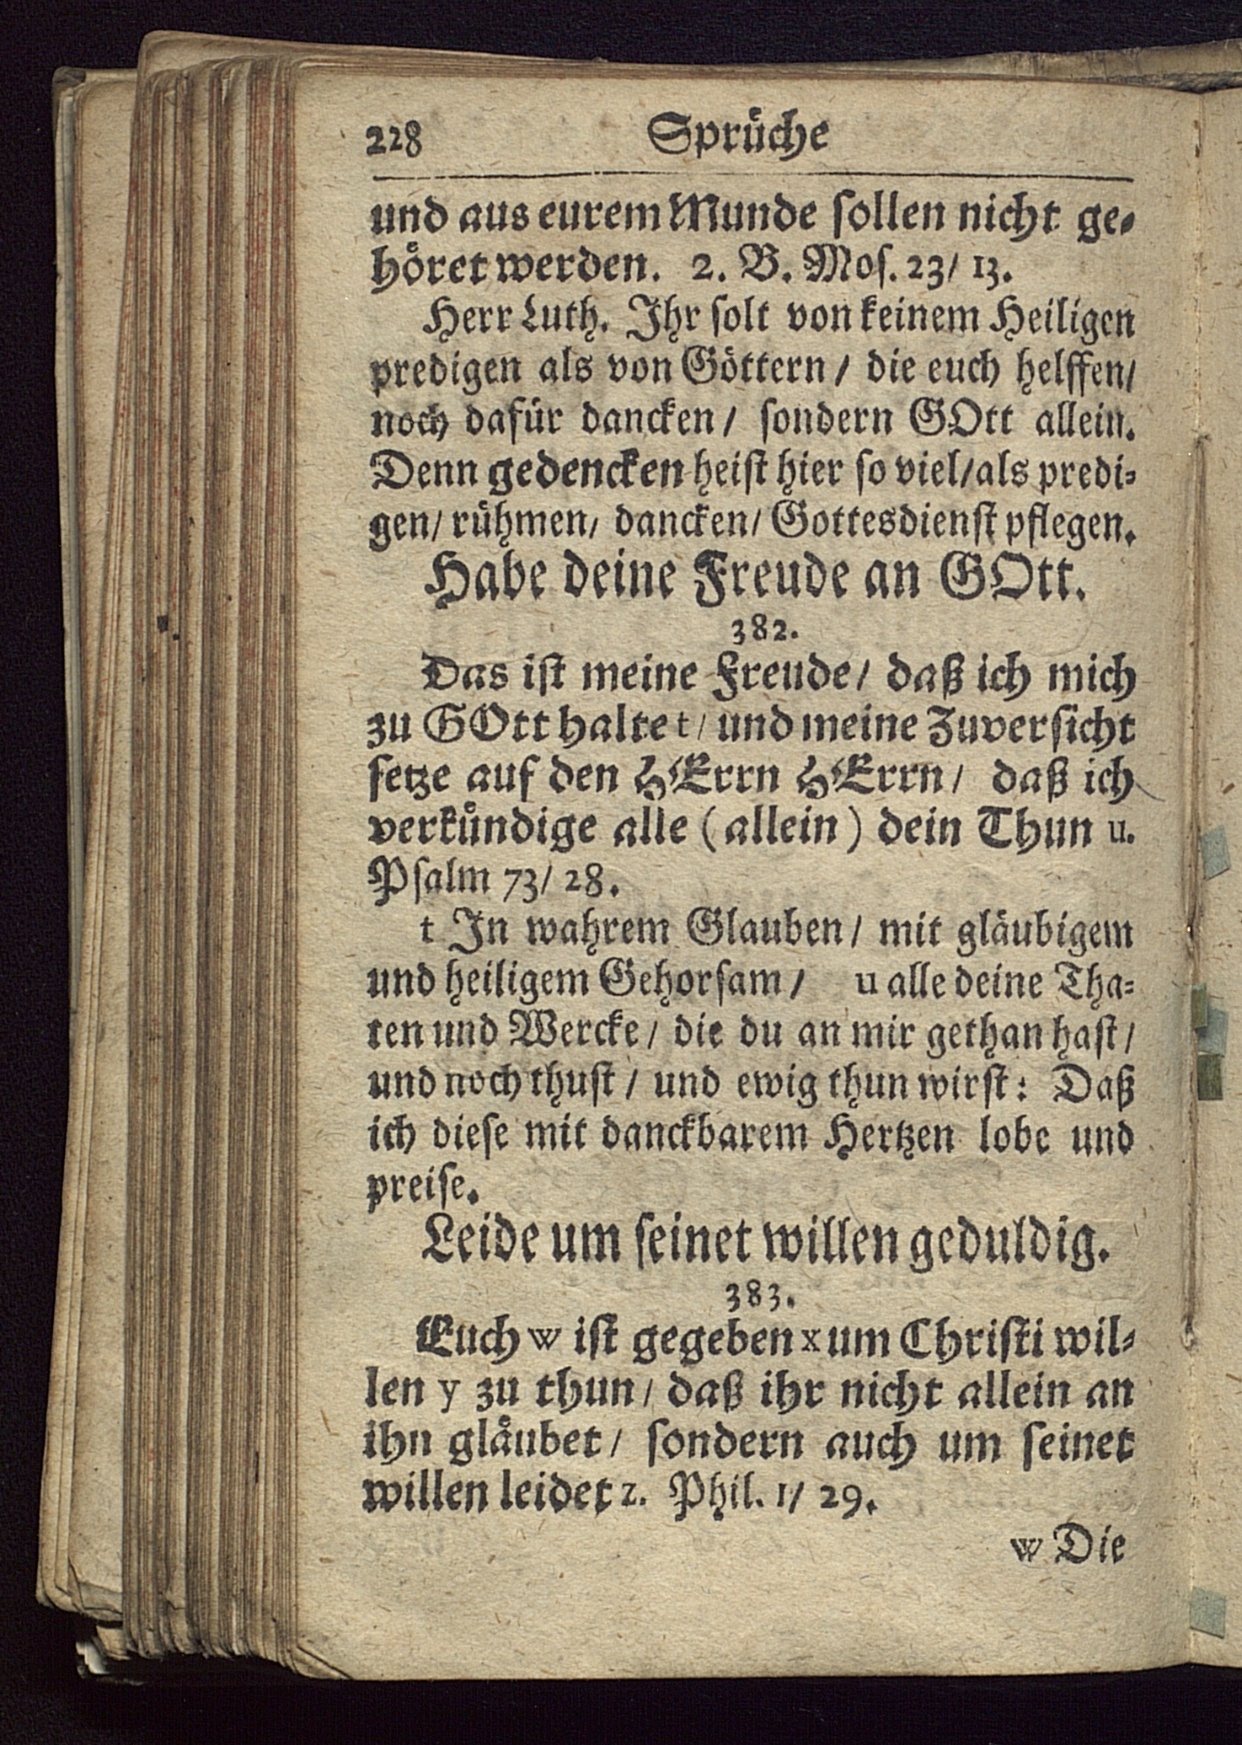 228 Sprüche
und aus eurem Munde sollen nicht ge-
höret werden. 2. B. Mos. 23/ 13.
Herr Luth. Ihr solt von keinem Heiligen
predigen als von Göttern/ die euch helffen/
noch dafür dancken/ sondern GOtt allein.
Denn gedencken heist hier so viel/als predi-
gen/ rühmen/ dancken/ Gottesdienst pflegen.
Habe deine Freude an GOtt.
382.
Das ist meine Freude/ daß ich mich
zu GOtt halte t/ und meine Zuversicht
setze auf den HErrn HErrn/ daß ich
verkündige alle (allein) dein Thun u.
Psalm 73/ 28.
t In wahrem Glauben/ mit gläubigem
und heiligem Gehorsam/ u alle deine Tha-
ten und Wercke/ die du an mir gethan hast/
und noch thust/ und ewig thun wirst: Daß
ich diese mit danckbarem Hertzen lobe und
preise.
Leide um seinet willen geduldig.
383.
Euch w ist gegeben x um Christi wil-
len y zu thun/ daß ihr nicht allein an
ihn gläubet/ sondern auch um seinet
willen leidet z. Phil. 1/ 29.
w Die